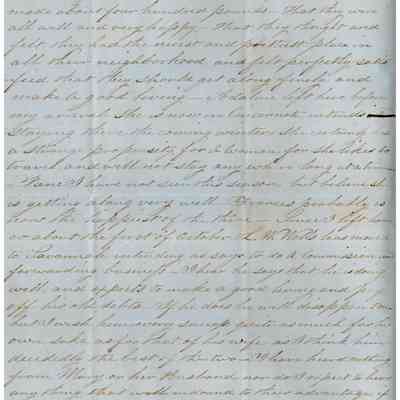 made about four hundred pounds. That they were
all well and very happy. That they thought and
felt they had the nicest and prettiest place in
all their neighborhood and felt perfectly satis
fied that they should get along finely and
make a good living — Adaline left here before
my arrival. She is now in Savannah intends
staying there the coming winter. She certainly is
a strange propensity for a woman for she likes to
travel and will not stay any where long at a time
I have not seen this season but believe she
is getting along very well — Frances probably is
now the happiest of the three — Since I left
on or about the first of October L. W. Wells has moved
to Savannah intending as says to do a Commission and
forwarding business — I hear he says that he is doing
well and expects to make a good living and pay
off his old debts — If he does he will disappoint me
but I wish him every success quite as much for his
own sake as for that of his wife as I think him
decidedly the best of the two — I have heard nothing
from Mary or her Husband nor do I expect to hear
any thing that will redound to their advantage if